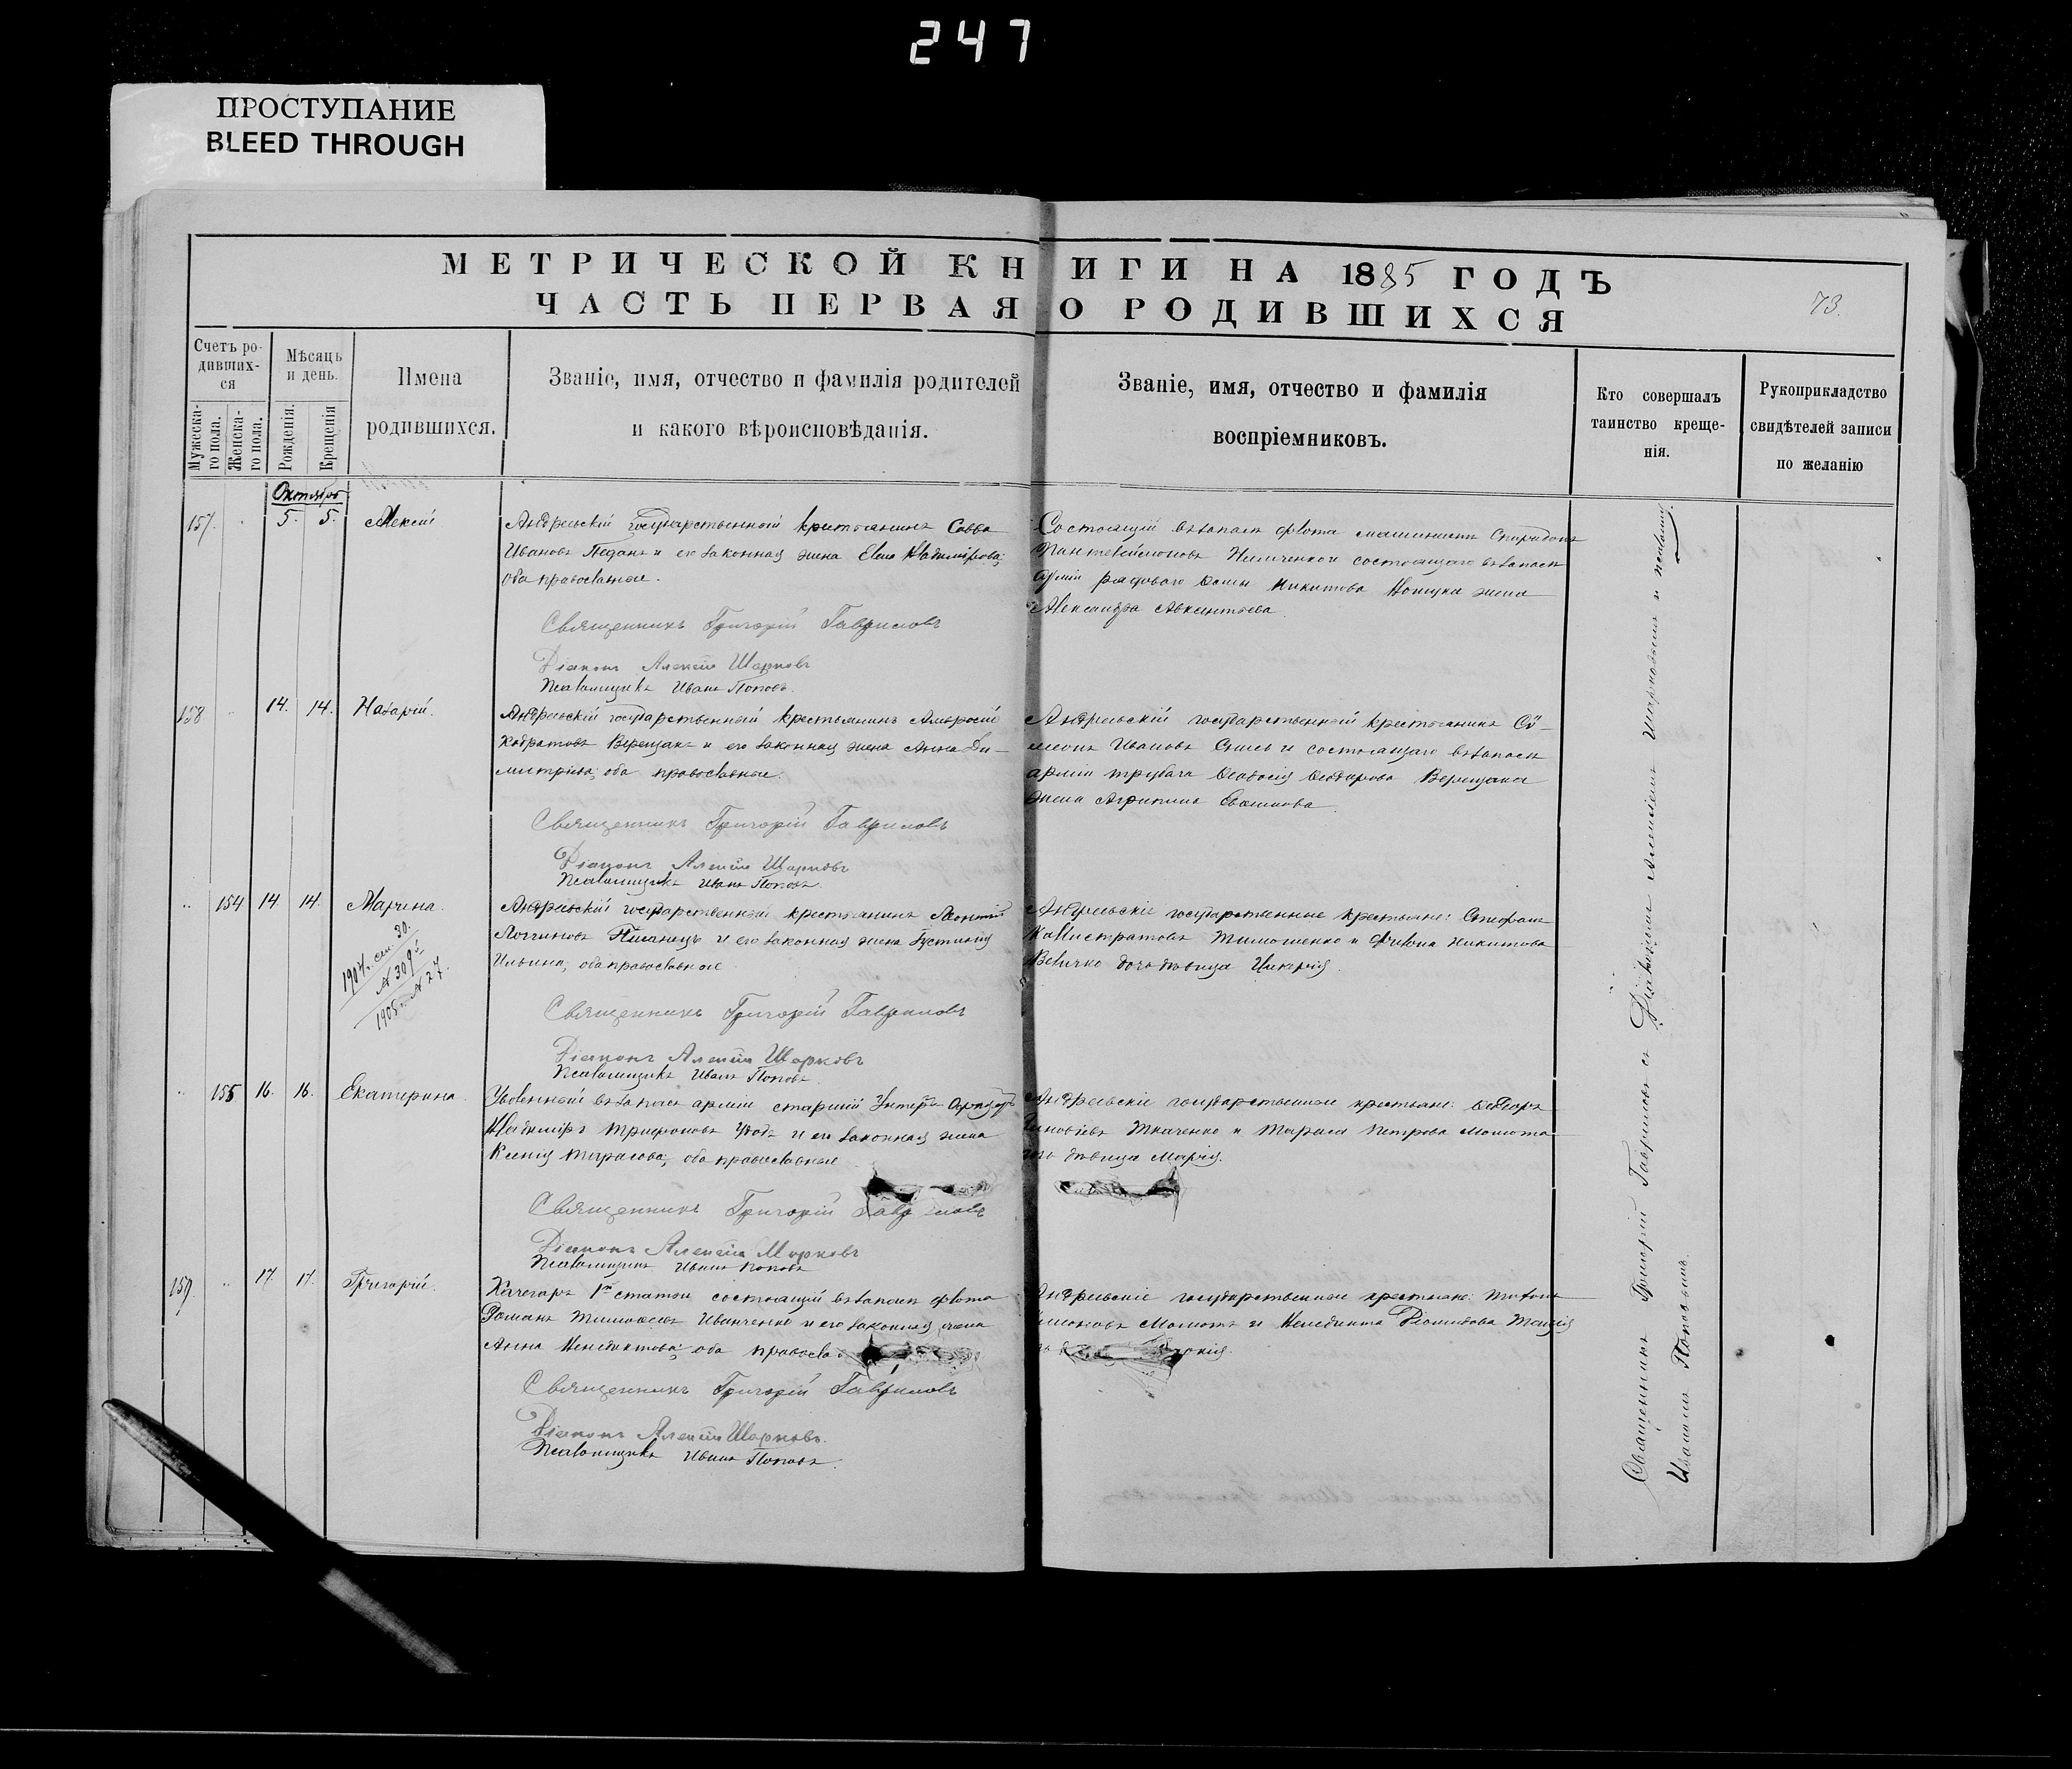 247
ПРОСТУПАНИЕ
BLEED THROUGH
МЕТРИЧЕСКОЙ КНИГИ НА 1885 ГОДЪ
ЧАСТЬ ПЕРВАЯ О РОДИВШИХСЯ
73.
Счетъ ро-
дивших-
ся
Мужеска-
го пола.
Женска-
го пола.
Мѣсяцъ
и день.
Рожденія.
Крещенія
Имена
родившихся.
Званіе, имя, отчество и фамилія родителей
и какого вѣроисповѣданія.
Званіе, имя, отчество и фамилія
воспріемниковъ.
Кто совершалъ
таинство креще-
нія.
Рукоприкладство
свидѣтелей записи
по желанію
Октябрь
157. 5. 5. Алексій
Андреевскій государственный крестьянинъ Савва
Ивановъ Педанъ и его законная жена Елена Владимірова;
оба православные.
Состоящій въ запасѣ флота машинистъ Спиридонъ
Пантелеймоновъ и состоящаго въ запасѣ
арміи рядоваго Никитова жена
Александра Авксентьева.
Священникъ Григорій Гавриловъ
Діаконъ Алексій Шарковъ
Псаломщикъ Иванъ Поповъ.
158 14. 14. Назарій.
Андреевскій государственный крестьянинъ Амвросій
Кодратовъ Верещака и его законная жена Анна Ди-
митріева; оба православные.
Андреевскій государственный крестьянинъ Сѵ-
меонъ Ивановъ и состоящаго въ запасѣ
арміи трубача Ѳеодосія Ѳеодорова Верещака
жена Агрипина Евѳимова.
Священникъ Григорій Гавриловъ
Діаконъ Алексій Шарковъ
Псаломщикъ Иванъ Поповъ.
154 14. 14. Марина.
1905 № 27.
Андреевскій государственный крестьянинъ Леонтій
Логгиновъ и его законная жена Іустинія
Ильина; оба православные.
Андреевскіе государственные крестьяне: Стефанъ
Каллистратовъ Тимошенко и Филиппа Никитова
Величко дочь дѣвица Гликерія.
Священникъ Григорій Гавриловъ
Діаконъ Алексій Шарковъ
Псаломщикъ Иванъ Поповъ.
155 16. 16. Екатерина.
Уволенный въ запасъ арміи старшій Унтеръ Офицеръ
Владиміръ Трифоновъ и его законная жена
Ксенія Тарасова; оба православные
Андреевскіе государственные крестьяне: Ѳеодоръ
Зиновіевъ Ткаченко и Тараса Петрова Момота
дочь дѣвица Марія.
Священникъ Григорій Гавриловъ
Діаконъ Алексій Шарковъ
Псаломщикъ Иванъ Поповъ
159 17. 17. Григорій.
Кочегаръ 1й статьи состоящій въ запасѣ флота
Романъ Тимоѳеевъ Иванченко и его законная жена
Анна Венедиктова; оба правосла
Андреевскіе государственные крестьяне:
Момотъ и Венедикта Діомидова
Священникъ Григорій Гавриловъ
Діаконъ Алексій Шарковъ.
Псаломщикъ Иванъ Поповъ.
Священникъ Григорій Гавриловъ съ Діакономъ Алексіемъ Шарковымъ и псаломщ.
Иваномъ Поповымъ.